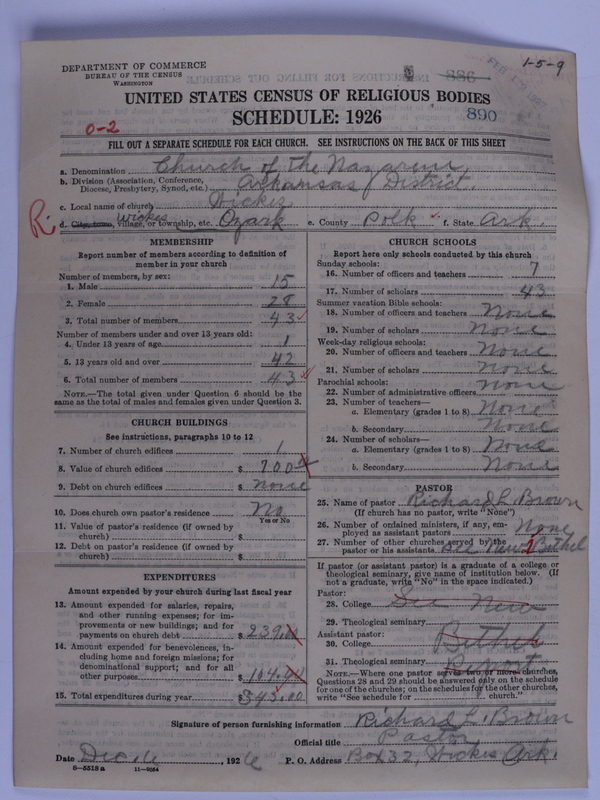 DEPARTMENT OF COMMERCE
BUREAU OF THE CENSUS
WASHINGTON
886
1-5-9
UNITED STATES CENSUS OF RELIGIOUS BODIES
SCHEDULE: 1926
890
0-2
FILL OUT A SEPARATE SCHEDULE FOR EACH CHURCH. SEE INSTRUCTIONS ON THE BACK OF THIS SHEET
a. Denomination Church of the Nazarene
b. Division (Association, Conference, Diocese, Presbytery, Synod, etc.) Arkansas District.
c. Local name of church Wickes
R. d. City, town, village, or township, etc. Wickes Ozark e. County Polk f. State Ark.
MEMBERSHIP
Report number of members according to definition of member in your church
Number of members, by sex:
1. Male 15
2. Female 28
3. Total number of members 43
Number of members under and over 13 years old:
4. Under 13 years of age 1
5. 13 years old and over 42
6. Total number of members 43
NOTE.—The total given under Question 6 should be the same as the total of males and females given under Question 3.
CHURCH BUILDINGS
See instructions, paragraphs 10 to 12
7. Number of church edifices 1
8. Value of church edifices $ 700
9. Debt on church edifices $ none
10. Does church own pastor's residence? No
Yes or No
11. Value of pastor's residence (if owned by church) $
12. Debt on pastor's residence (if owned by church) $
EXPENDITURES
Amount expended by your church during last fiscal year
13. Amount expended for salaries, repairs, and other running expenses; for improvements or new buildings; and for payments on church debt $ 239.00
14. Amount expended for benevolences, including home and foreign missions; for denominational support; and for all other purposes $ 104.00
15. Total expenditures during year $ 343.00
CHURCH SCHOOLS
Report here only schools conducted by this church
Sunday schools:
16. Number of officers and teachers 7
17. Number of scholars 43
Summer vacation Bible schools:
18. Number of officers and teachers None
19. Number of scholars None
Week-day religious schools:
20. Number of officers and teachers None
21. Number of scholars None
Parochial schools:
22. Number of administrative officers None
23. Number of teachers—
a. Elementary (grades 1 to 8) None
b. Secondary None
24. Number of scholars—
a. Elementary (grades 1 to 8) None
b. Secondary None
PASTOR
25. Name of pastor Richard L. Brown
(If church has no pastor, write "None")
26. Number of ordained ministers, if any, employed as assistant pastors None
27. Number of other churches served by the pastor or his assistants See New Bethel 1
If pastor (or assistant pastor) is a graduate of a college or theological seminary, give name of institution below. (If not a graduate, write "No" in the space indicated.)
Pastor:
28. College See New
29. Theological seminary
Assistant pastor:
30. College Bethel
31. Theological seminary Report
NOTE.—Where one pastor served two or more churches, Questions 28 and 29 should be answered only on the schedule for one of the churches; on the schedules for the other churches, write "See schedule for church."
Signature of person furnishing information Richard L. Brown
Official title Pastor
Date Dec. 6, 1926 P. O. Address Box 32, Wickes Ark.
6—5518 a 11—9054